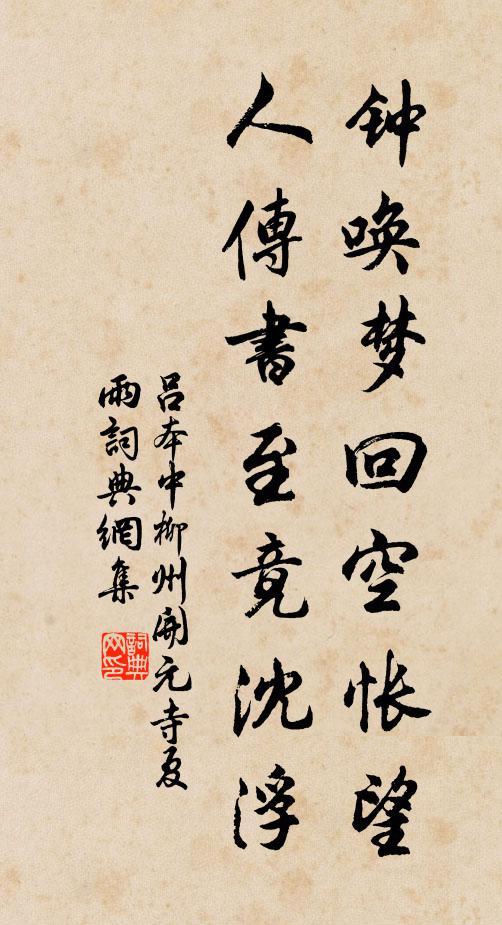 钟唤梦回空怅望
人傳書至竟沈浮
吕本中柳州開元寺夏
雨詞典網集
詞典
网印